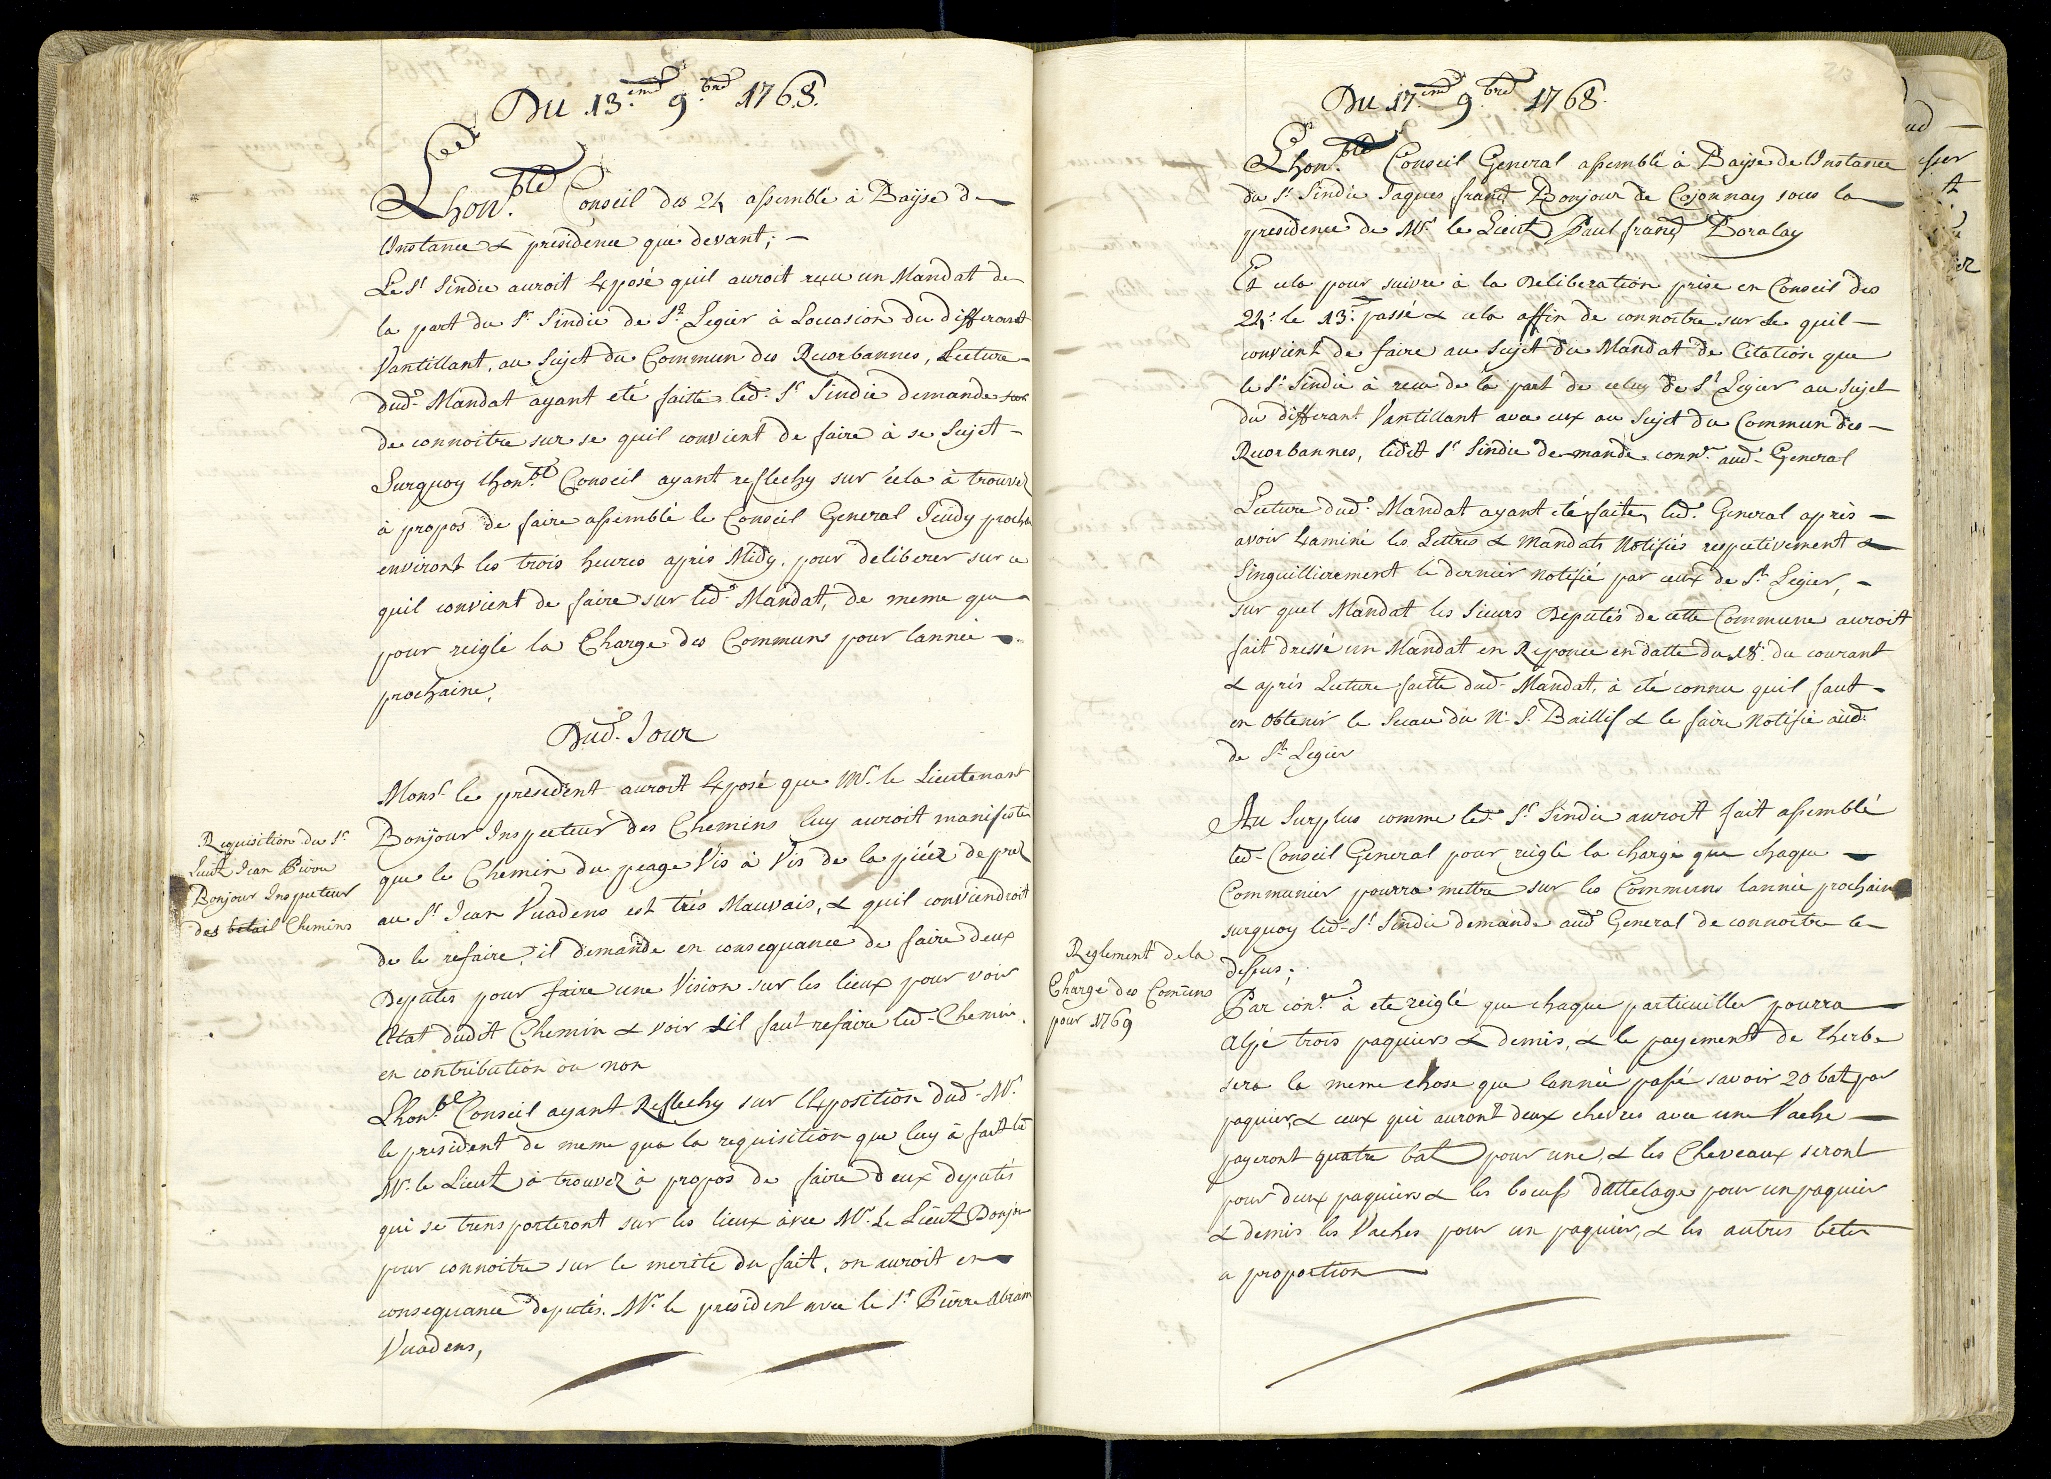 Du 13.eme 9.bre 1768.
Lhon.ble Conseil des 24 assemblé à Bayse de
linstance & presidence que devant; —
Le Sr Sindic auroit Exposé quil auroit reçu un Mandat de
la part du Sr Sindic de St Legier à Loccasion du differant
Vantillant, au Sujet du Commun des Ruorbannes, Lecture
dud.t Mandat ayant eté faitte led. Sr Sindic demande
de connoitre sur se quil convient de faire à se Sujet —
Surquoy lhon.ble Conseil ayant reflechy sur cela à trouvez
à propos de faire assemblé le Conseil General Jeudy procha
environt les trois heures après Midy, pour deliberer sur ce
quil convient de faire sur led.t Mandat, de meme que
pour reiglé la Charge des Communs pour lannée —
prochaine,
Dud. Jour
Requisition du Sr
Lieut Jean Pierre
Bonjour Inspecteur
des betail Chemins
Mons.r le president auroit Exposé que Mr. le Lieutenant
Bonjour Inspecteur des Chemins luy auroit manifesté
que le Chemin du peage Vis à Vis de la piéce de prez
au Sr Jean Vuadens est très Mauvais, & quil conviendroit
de le refaire, il demande en consequance de faire deux
Deputés pour faire une Vision sur les lieux pour voir
létat dudit Chemin & voir sil faut refaire led. Chemin
en contribution ou non
Lhon.ble Conseil ayant Reflechy sur lExposition dud. Mr.
le president de meme qua la requisition que luy à fait led
Mr. le Lieut à trouvez à propos de faire deux deputés
qui se transporteront sur les lieux avec Mr. le Lieut Bonjou
pour connoitre sur le merite du fait, on auroit en
consequance deputés. Mr. le president avec le Sr Pierre Abram
Vuadens,
213
Du 17.eme 9.bre 1768.
Lhon.ble Conseil General assemblé à Bayse de linstance
du Sr Sindic Jaques franç Bonjour de Cojonnay sous la
presidence de Mr. le Lieut Paul franç Boralay
Et cela pour suivre à la Deliberation prise en Conseil des
24: le 13.e passé & cela affin de connoitre sur ce quil —
convient de faire au sujet du Mandat de Citation que
le Sr Sindic à reçu de la part de celuy de St Legier au sujet
du differant Vantillant avec eux au sujet du Commun des —
Ruorbannes, ledit Sr Sindic demande conn.ce aud. General
Lecture dud.t Mandat ayant eté faite, led. General après —
avoir Examiné les Lettres & mandats Notifiés respectivement &
Singuillierement le dernier Notifié par ceux de St Legier, —
sur quel Mandat les Sieurs Deputés de cette Commune auroit
fait dressé un Mandat en Reponce en datte du 18e. du courant
& après Lecture faitte dud. Mandat, à eté connu quil faut —
en obtenir le Sceau du N. S. Baillif & le faire Notifié aud.
de St Legier
Au Surplus comme led. Sr Sindic auroit fait assemblé
led. Conseil General pour reiglé la charge que chaque —
Communier pourra mettre sur les Communs lannée prochaine
surquoy led. Sr Sindic demande aud General de connoitre le
dessus;
Reglement de la
Charge des Comūns
pour 1769
Par con.ce à eté reiglé que chaque particuillier pourra
alpé trois paquiers & demis, & le payement de lherbe
sera la meme chose que lannée passé savoir 20 bat par
paquier, & ceux qui auront deux chevres avec une Vache —
payeront quatre bat pour une, & les Cheveaux seront
pour deux paquiers & les boeufs dattelage pour un paquier
& demis les Vaches pour un paquier, & les autres betes
a proportion